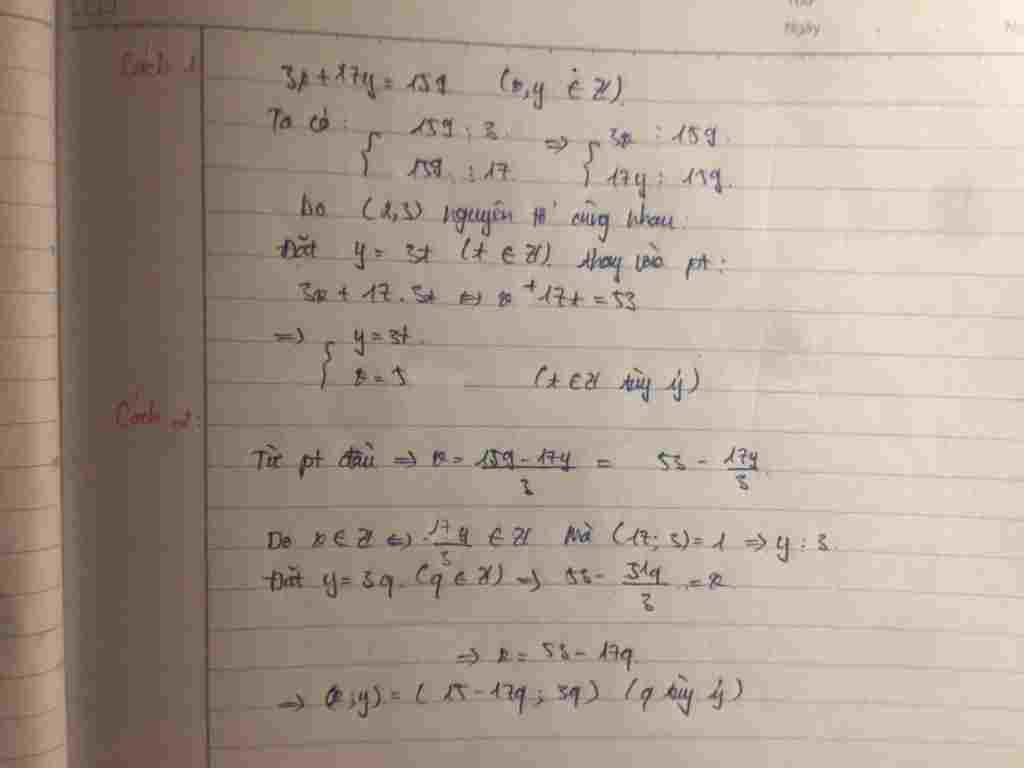 Ngày
Cách 1
3x + 17y = 159 (x, y ∈ Z)
Ta có: { 159 ⋮ 3 ⇒ { 3x ⋮ 159.
159 ⋮ 17 17y ⋮ 159.
Do (2,3) nguyên tố cùng nhau.
Đặt y = 3t (t ∈ Z) thay vào pt:
3x + 17.3t ⇔ x + 17t = 53
⇒ { y = 3t.
x = 5 (t ∈ Z tùy ý)
Cách 2:
Từ pt đầu ⇒ x = (159 - 17y)/3 = 53 - 17y/3
Do x ∈ Z ⇔ 17y/3 ∈ Z mà (17; 3) = 1 ⇒ y ⋮ 3.
Đặt y = 3q (q ∈ Z) ⇒ 53 - 51q/3 = x
⇒ x = 53 - 17q
⇒ (x; y) = (15 - 17q; 3q) (q tùy ý)